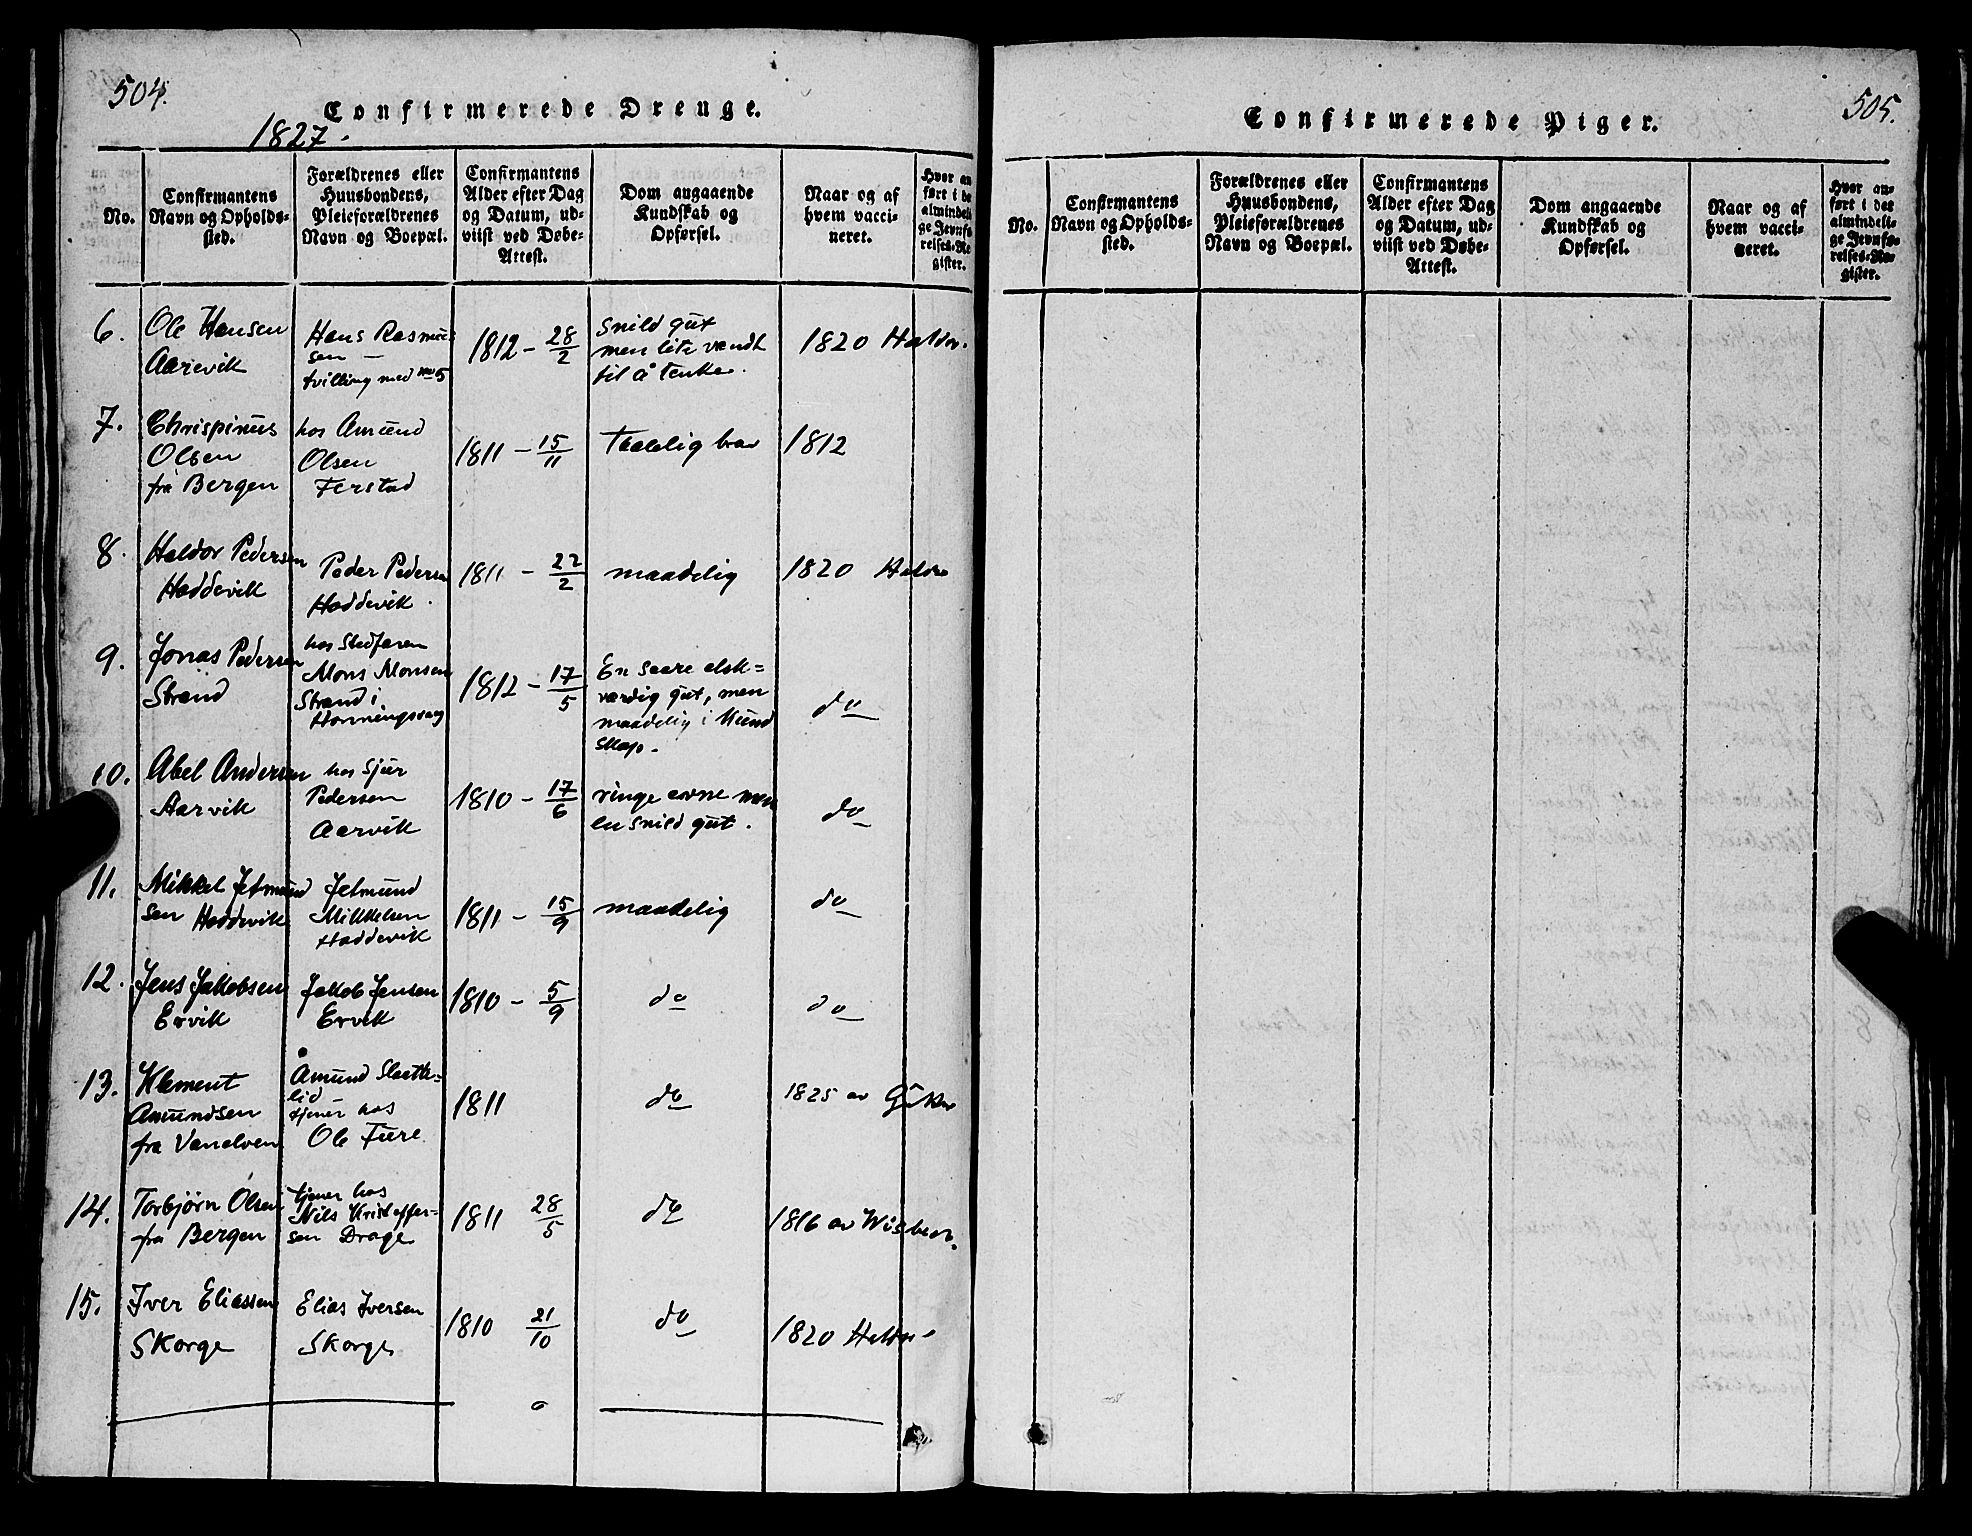 504.
Confirmerede Drenge.
1827.
No.
Confirmantens
Navn og Opholds-
sted.
Forældrenes eller
Huusbondens,
Pleieforældrenes
Navn og Boepæl.
Confirmantens
Alder efter Dag
og Datum, ud-
viist ved Døbe-
Attest.
Dom angaaende
Kundskab og
Opførsel.
Naar og af
hvem vacci-
neret.
Hvor an
ført i de
almindeli
ge Jevnfø
relses-Re
gister.
6.
Ole Hansen
Aarevik
Hans Rasmus
sen —
tvilling med No 5
1812 - 28/2
Snild gut
men lite vandt
til å tenke.
1820 Haldor.
7.
Chrispinus
Olsen
frå Bergen
hos Amund
Olsen
Ferstad
1811 - 15/11
Taalelig bra
1812
8.
Haldor Pedersen
Hoddevik
Peder Pedersen
Hoddevik.
1811 - 22/2
maadelig
1820
9.
Jonas Pedersen
Strand
hos Stedfaren
Mons Monsen
Strand i
Honningsvaag
1812 - 17/5
En saare elsk=
værdig gut, men
maadelig i Kund
skap.
do
10.
Abel Andersen
Aarvik
hos Sjur
Pedersen
Aarvik
1810 - 17/6
ringe evne men
en snild gut.
do
11.
Mikkel Jetmund
sen Hoddevik
Jetmund
Mikkelsen
Hoddevik
1811 - 15/9
maadelig
do
12.
Jens Jakobsen
Ervik
Jakob Jensen
Ervik
1810 - 5/9
do
do
13.
Klement
Amundsen
fra Vanelven
Åmund Slætte=
lid
tjener hos
Ole Fure
1811
do
1825 av
14.
Torbjørn Olsen
fra Bergen
tjener hos
Nils Kristoffer-
sen Drage
1811 28/5
do
1816 av
15.
Iver Eliassen
Skorge
Elias Iversen
Skorge
1810 21/10
do
1820
505.
Confirmerede Piger.
No.
Confirmantens
Navn og Opholds-
sted.
Forældrenes eller
Huusbondens,
Pleieforældrenes
Navn og Boepæl.
Confirmantens
Alder efter Dag
og Datum, ud-
viist ved Døbe-
Attest.
Dom angaaende
Kundskab og
Opførsel.
Naar og af
hvem vacci-
neret.
Hvor an-
ført i det
almindeli-
ge Jevnfø-
relses-Re-
gister.